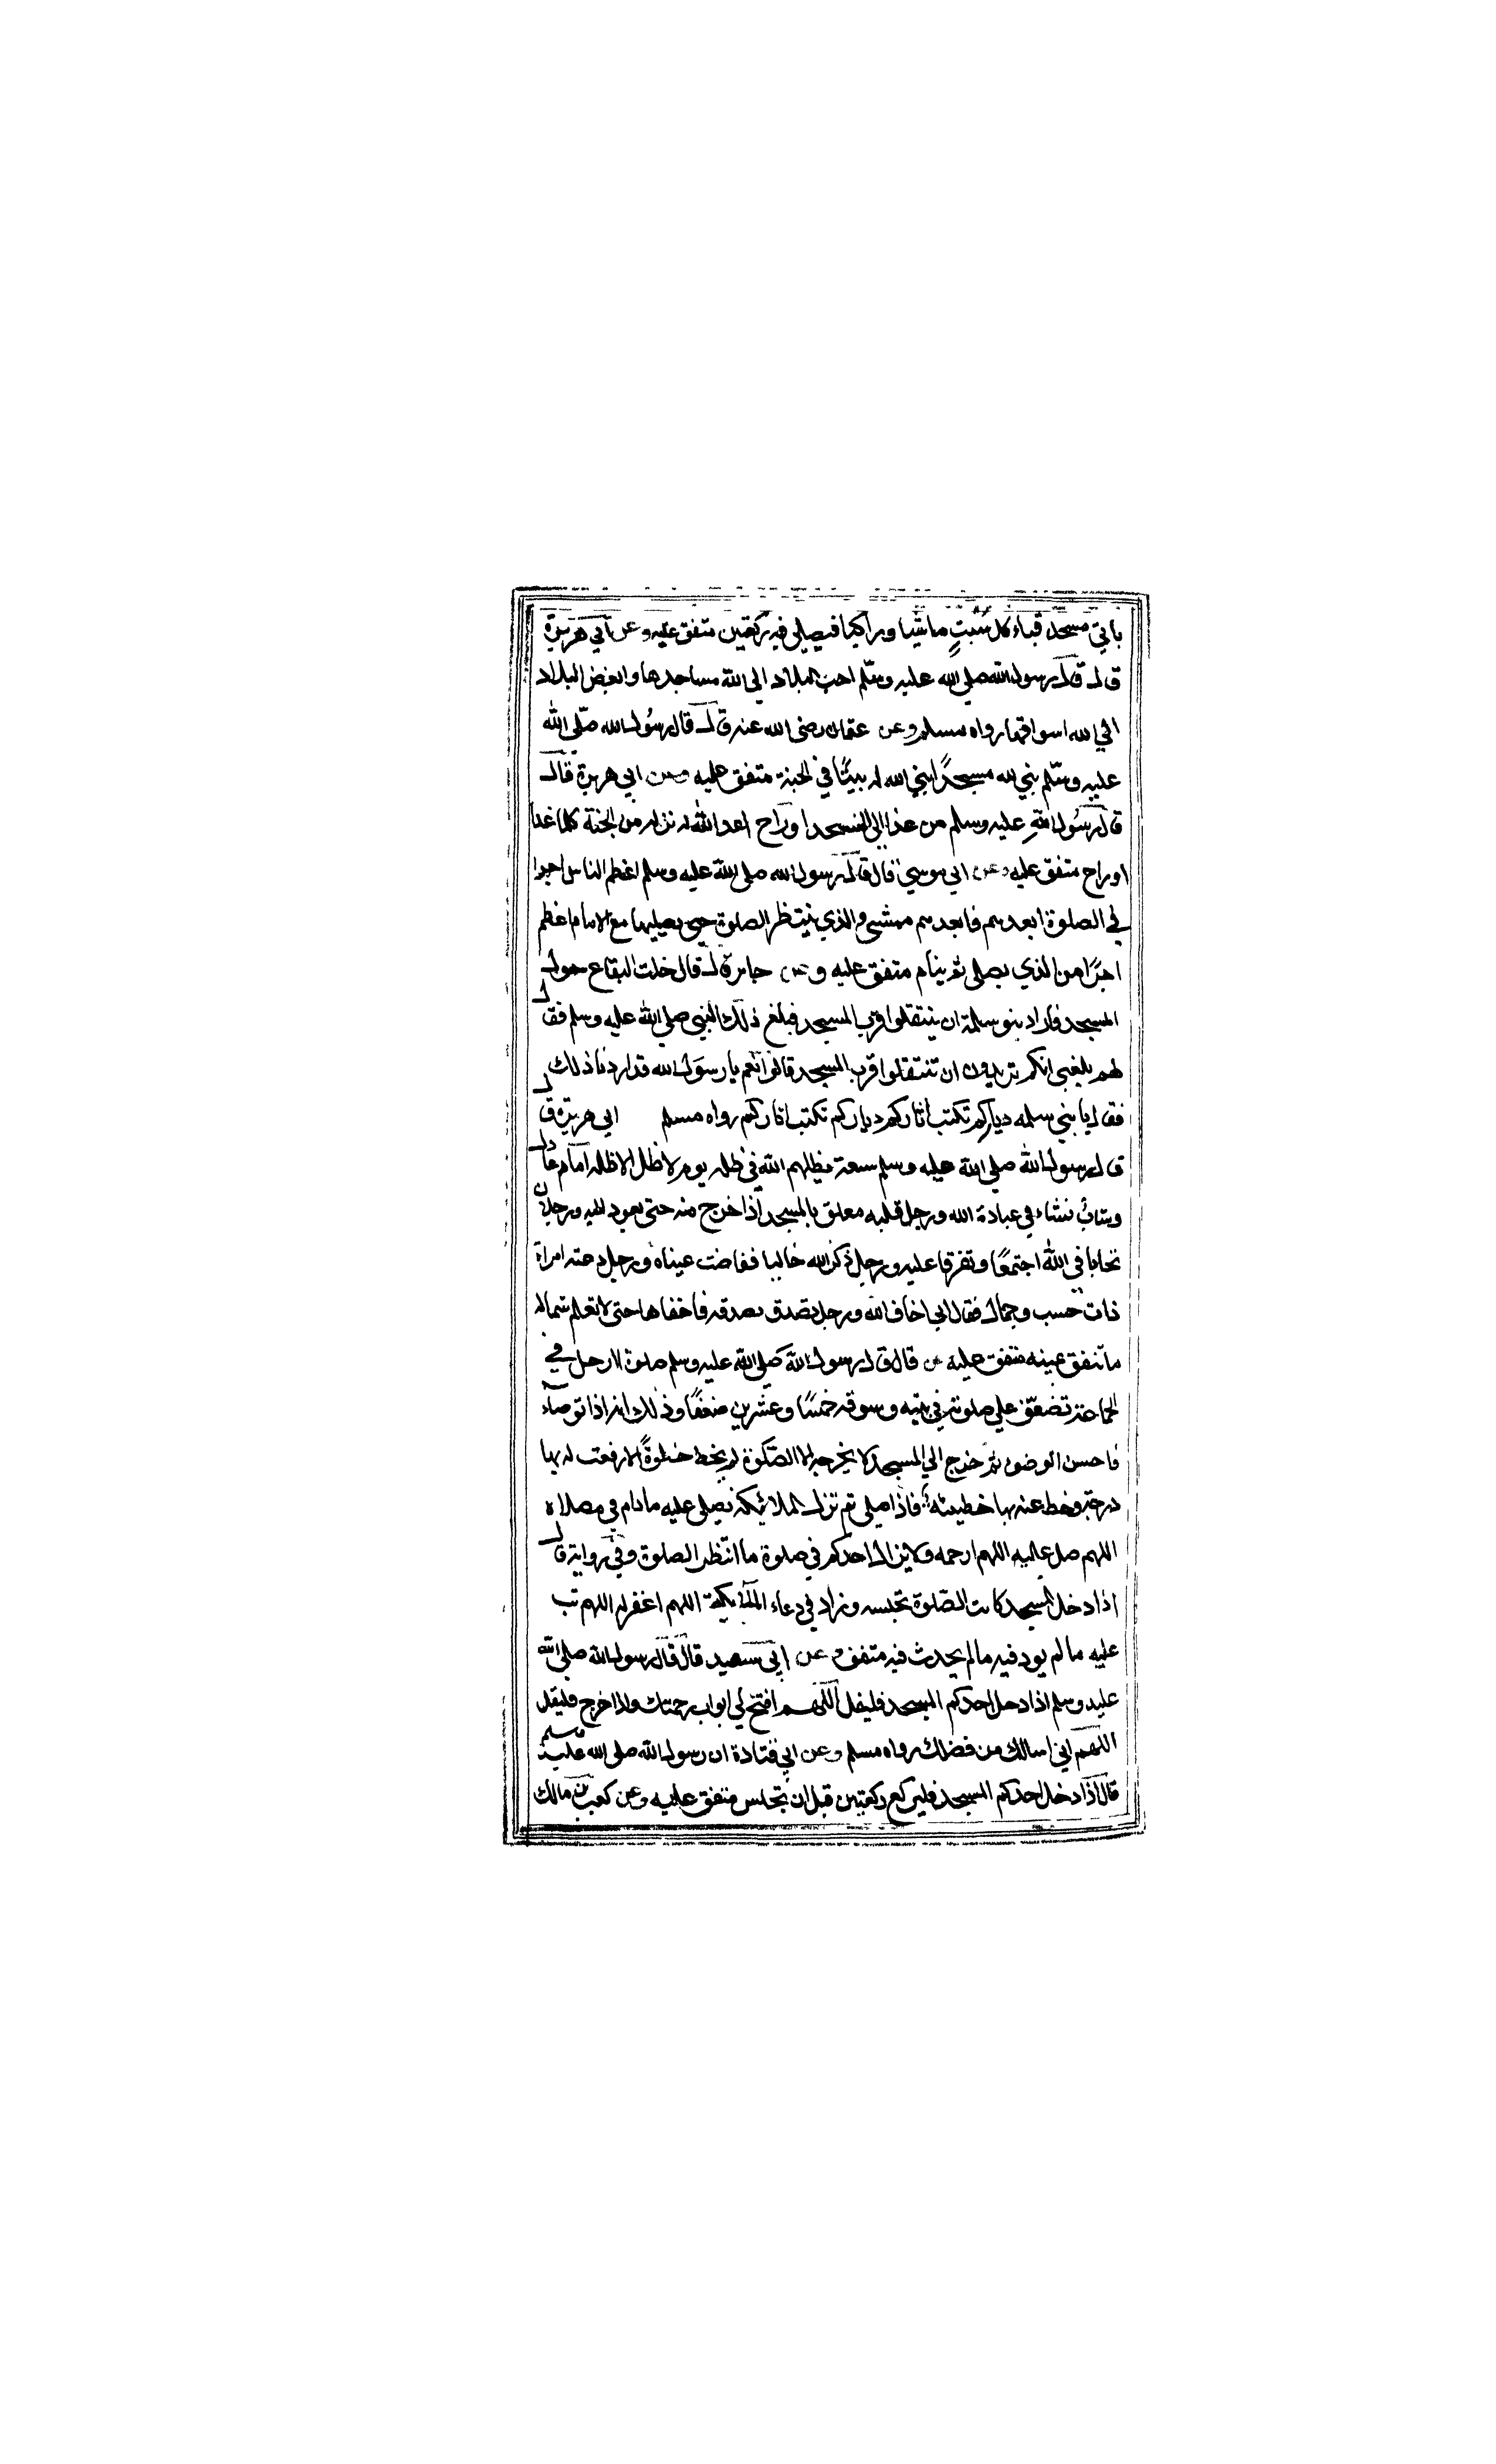 ياتي مسجد قباء كل سبتٍ ماشيا وراكبا فيصلي فيه ركعتين متفق عليه وعن ابي هريرة
قال قال رسول الله صلي الله عليه وسلم احب البلاد الي الله مساجدها وابغض البلاد
الي الله اسواقها رواه مسلم وعن عثمان رضي الله عنه قال قال رسُول الله صلّى الله
عليه وسلّم بني لله مسجدًا بني الله له بيتًا في الجنة متفق عليه وعن ابي هريرة قال
قال رسُول اللهِ عليه وسلم من غدا الى المسجد او راح اعد الله له نزله من الجنة كلما غدا
او راح متفق عليه وعن ابي موسي قال قال رسول الله صلى الله عليه وسلم اعظم الناس اجرا
في الصلوة ابعدهم فابعدهم ممشى والذي ينتظر الصلوة حتى يصليها مع الامام اعظم
اجرًا من الذي يصلي ثم ينام متفق عليه وعن جابر قال قال خلت البقاع حول
المسجد فاراد بنو سلمة ان ينتقلوا قرب المسجد فبلغ ذلك النبي صلي الله عليه وسلم فقال
لهم بلغني انكم تريدون ان تنتقلوا قرب المسجد قالوا نعم يا رسول الله قد اردنا ذلك
فقال يا بني سلمه دياركم تكتب اثاركم دياركم تكتب اثاركم رواه مسلم ابي هريرة قال
قال رسول الله صلي الله عليه وسلم سبعة يظلهم الله في ظله يوم لا ظل الا ظله امام عادل
وشابٌ نشاء في عبادة الله ورجل قلبه معلق بالمسجد اذا خرج منه حتى يعود اليه ورجلان
تحابا في الله اجتمعًا وتفرقا عليه ورجل ذكر الله خاليا ففاضت عيناه ورجل دعته امراة
ذات حسب وجمال فقال اني اخاف الله ورجل تصدق بصدقه فاخفاها حتى لا تعلم شماله
ما تنفق يمينه متفق عليه عن قال قال رسول الله صلى الله عليه وسلم صلوة الرجل في
الجماعة تضعف علي صلوته في بيته وسوقه خمسًا وعشرين ضعفًا وذلك انه اذا توضاء
فاحسن الوضو ثم خرج الي المسجد لا يخرجه الا الصّلوة لم يخط خطوةً الا رفعت له بها
درجة وحط عنه بها خطيئه فاذا صلى لم تزل الملائكة تصلي عليه ما دام في مصلاه
اللهم صل عليه اللهم ارحمه ولا يزال احدكم في صلوة ما انتظر الصلوة وفي رواية قال
اذا دخل المسجد كانت الصّلوة تحبسه وزاد في دعاء الملئكة اللهم اغفر له اللهم تب
عليه ما لم يود فيه ما لم يحدث فيه متفق وعن ابي سعيد قال قال رسول الله صلى الله
عليه وسلم اذا دخل احدكم المسجد فليقل اللهم افتح لي ابواب رحمتك واذا خرج فليقل
اللهم اني اسالك من فضلك رواه مسلم وعن ابي قتادة ان رسول الله صلى الله عليه وسلم
قال اذا دخل احدكم المسجد فليركع ركعتين قبل ان يجلس متفق عليه وعن كعب بن مالك